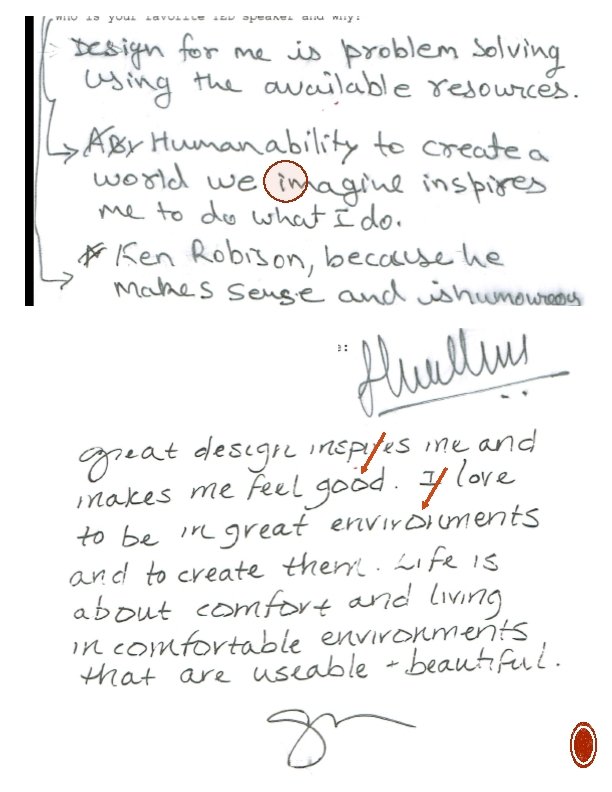 Who is your favorite TED speaker and why?
Design for me is problem solving
using the available resources.
Human ability to create a
world we imagine inspires
me to do what I do.
Ken Robison, because he
makes sense and is humourous
great design inspires me and
makes me feel good. I love
to be in great environments
and to create them. Life is
about comfort and living
in comfortable environments
that are useable + beautiful.